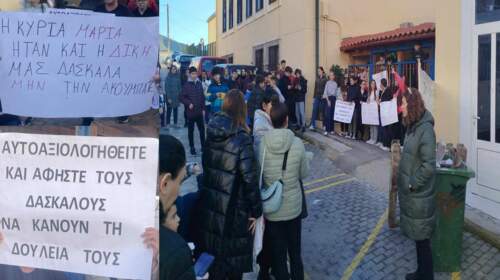 Η ΚΥΡΙΑ ΜΑΡΙΑ
ΗΤΑΝ ΚΑΙ Η ΔΙΚΗ
ΜΑΣ ΔΑΣΚΑΛΑ
ΜΗΝ ΤΗΝ ΑΚΟΥΜΠΑΤΕ
ΑΥΤΟΑΞΙΟΛΟΓΗΘΕΙΤΕ
ΚΑΙ ΑΦΗΣΤΕ ΤΟΥΣ
ΔΑΣΚΑΛΟΥΣ
ΝΑ ΚΑΝΟΥΝ ΤΗ
ΔΟΥΛΕΙΑ ΤΟΥΣ